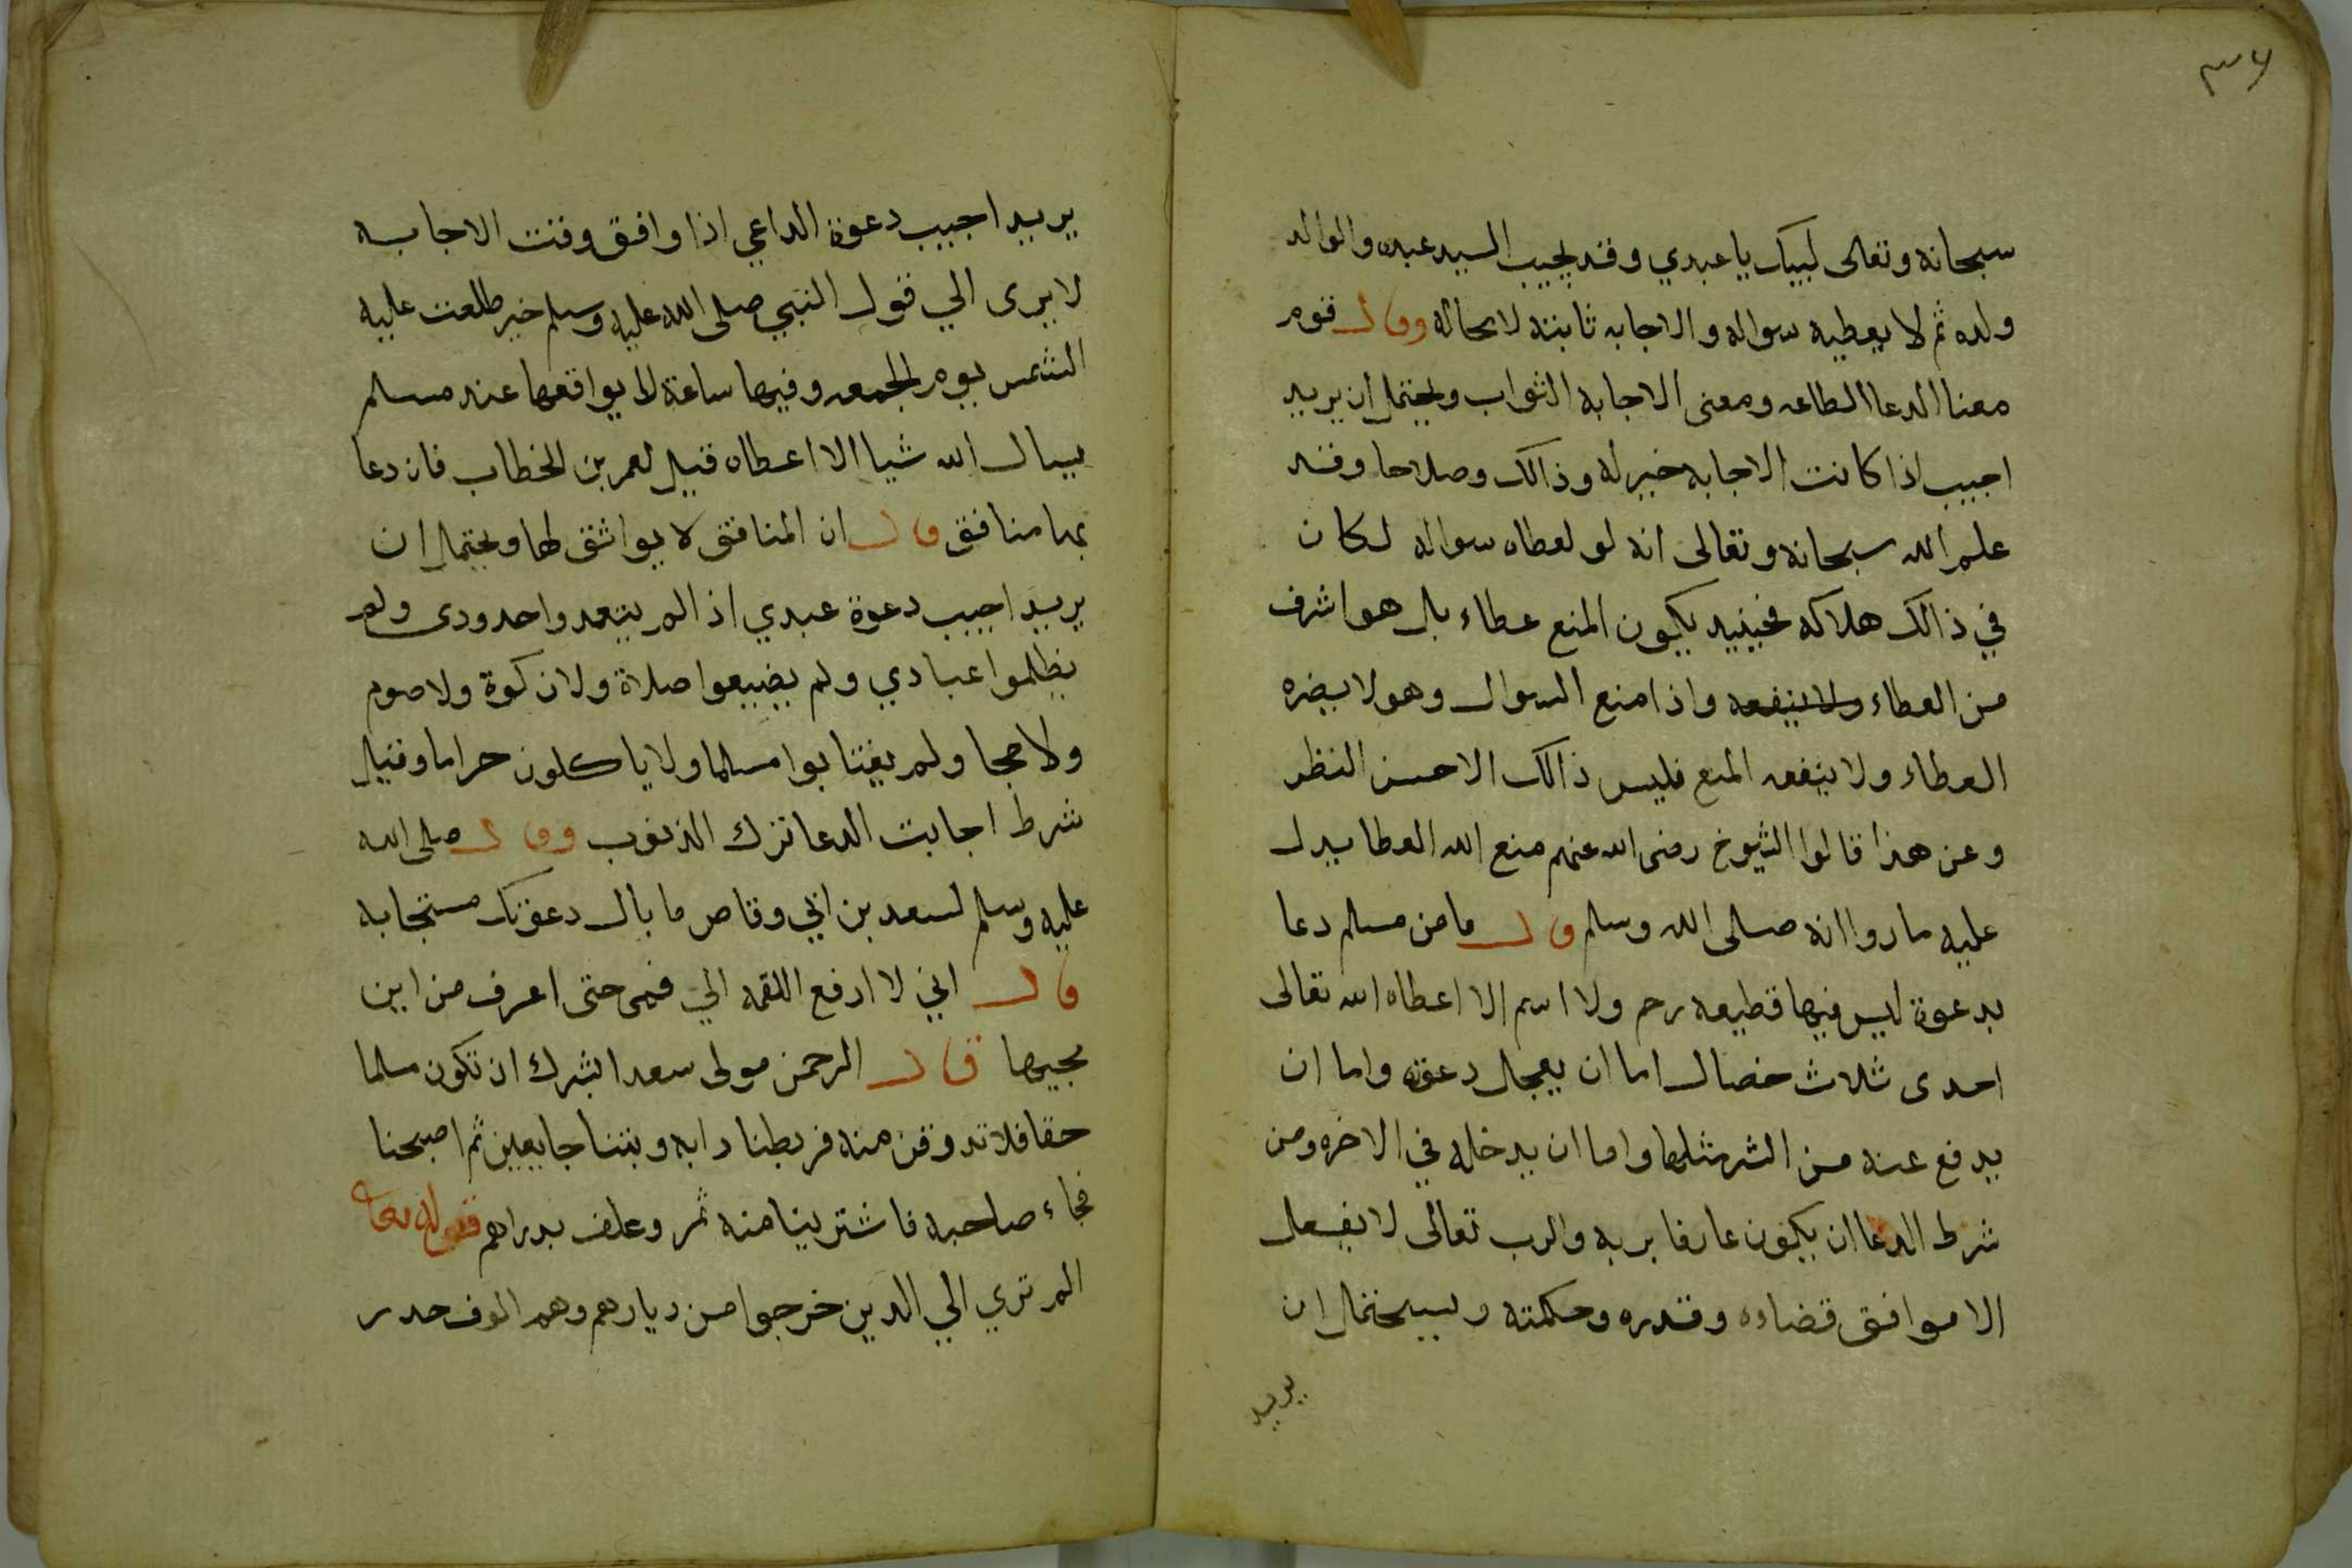 ٣٦
سبحانه وتعالى لبيك يا عبدي وقد يجيب السيد عبده والوالد
ولده ثم لا يعطيه سواله والاجابه ثابتة لا محاله وقال قوم
معنا الدعا الطاعه ومعنى الاجابه الثواب ويحتمل ان يريد
اجيب اذا كانت الاجابه خير له وذالك وصلاحا وقد
علم الله سبحانه وتعالى انه لو لعطاه سواله لكان
في ذالك هلاكه فحينيد يكون المنع عطاء بل هو اشرف
من العطاء ولا ينفعه واذا منع السوال وهو لا يضره
العطاء ولا ينفعه المنع فليس ذالك الا حسن النظر
وعن هذا قالوا الشيوخ رضى الله عنهم منع الله العطا يدل
عليه ما روا انه صلى الله وسلم قال ما من مسلم دعا
بدعوة ليس فيها قطيعه رحم ولا اسم الا اعطاه الله تعالى
احدى ثلاث خصال اما ان يعجل دعوته واما ان
يدفع عنه من الشر مثلها واما ان يدخله في الاخره ومن
شرط الدعا ان يكون عارفا بربه والرب تعالى لا يفعل
الا موافق قضاوه وقدره وحكمته ان
يريد
يريد اجيب دعوة الداعي اذا وافق وقت الاجابه
لا يرى الي قول النبي صلى الله عليه وسلم خير طلعت عليه
الشمس يوم الجمعه وفيها ساعة لا يواقعها عند مسلم
يسال الله شيا الا اعطاه قيل لعمر بن الخطاب فان دعا
بها منافق قال ان المنافق لا يواثق لها ويحتمل ان
يريد اجيب دعوة عبدي اذ الم يتعد واحدودى ولم
يظلموا عبادي ولم يضيعوا صلاة ولا زكوة ولا صوم
ولا حجا ولم يغتابوا مسلما ولا ياكلون حراما وقيل
شرط اجابت الدعا ترك الذنوب وقال صلى الله
عليه وسلم لسعد بن ابي وقاص ما بال دعوتك مستجابه
قال اني لا ارفع اللقمه الي فمى حتى اعرف من اين
مجيها قال الرحمن مولى سعد اشرك ان تكون مسلما
حقا فلا تدوقن منه فربطنا دابه وبتنا جايعين ثم اصبحنا
فجاء صاحبه فاشترينا منه ثمر وعلف بدراهم قوله تعا
الم تري الي الدين خرجوا من ديارهم وهم الوف حدر